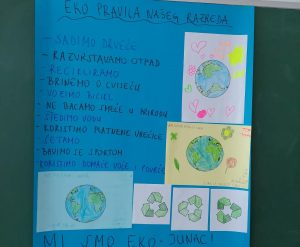 EKO PRAVILA NAŠEG RAZREDA
- SADIMO DRVEĆE
- RAZVRSTAVAMO OTPAD
- RECIKLIRAMO
- BRINEMO O CVIJEĆU
- VOZIMO BICIKL
- NE BACAMO SMEĆE U PRIRODU
- ŠTEDIMO VODU
- KORISTIMO PLATNENE VREĆICE
- ŠETAMO
- BAVIMO SE SPORTOM
- KORISTIMO DOMAĆE VOĆE I POVRĆE
MI SMO EKO-JUNACI!